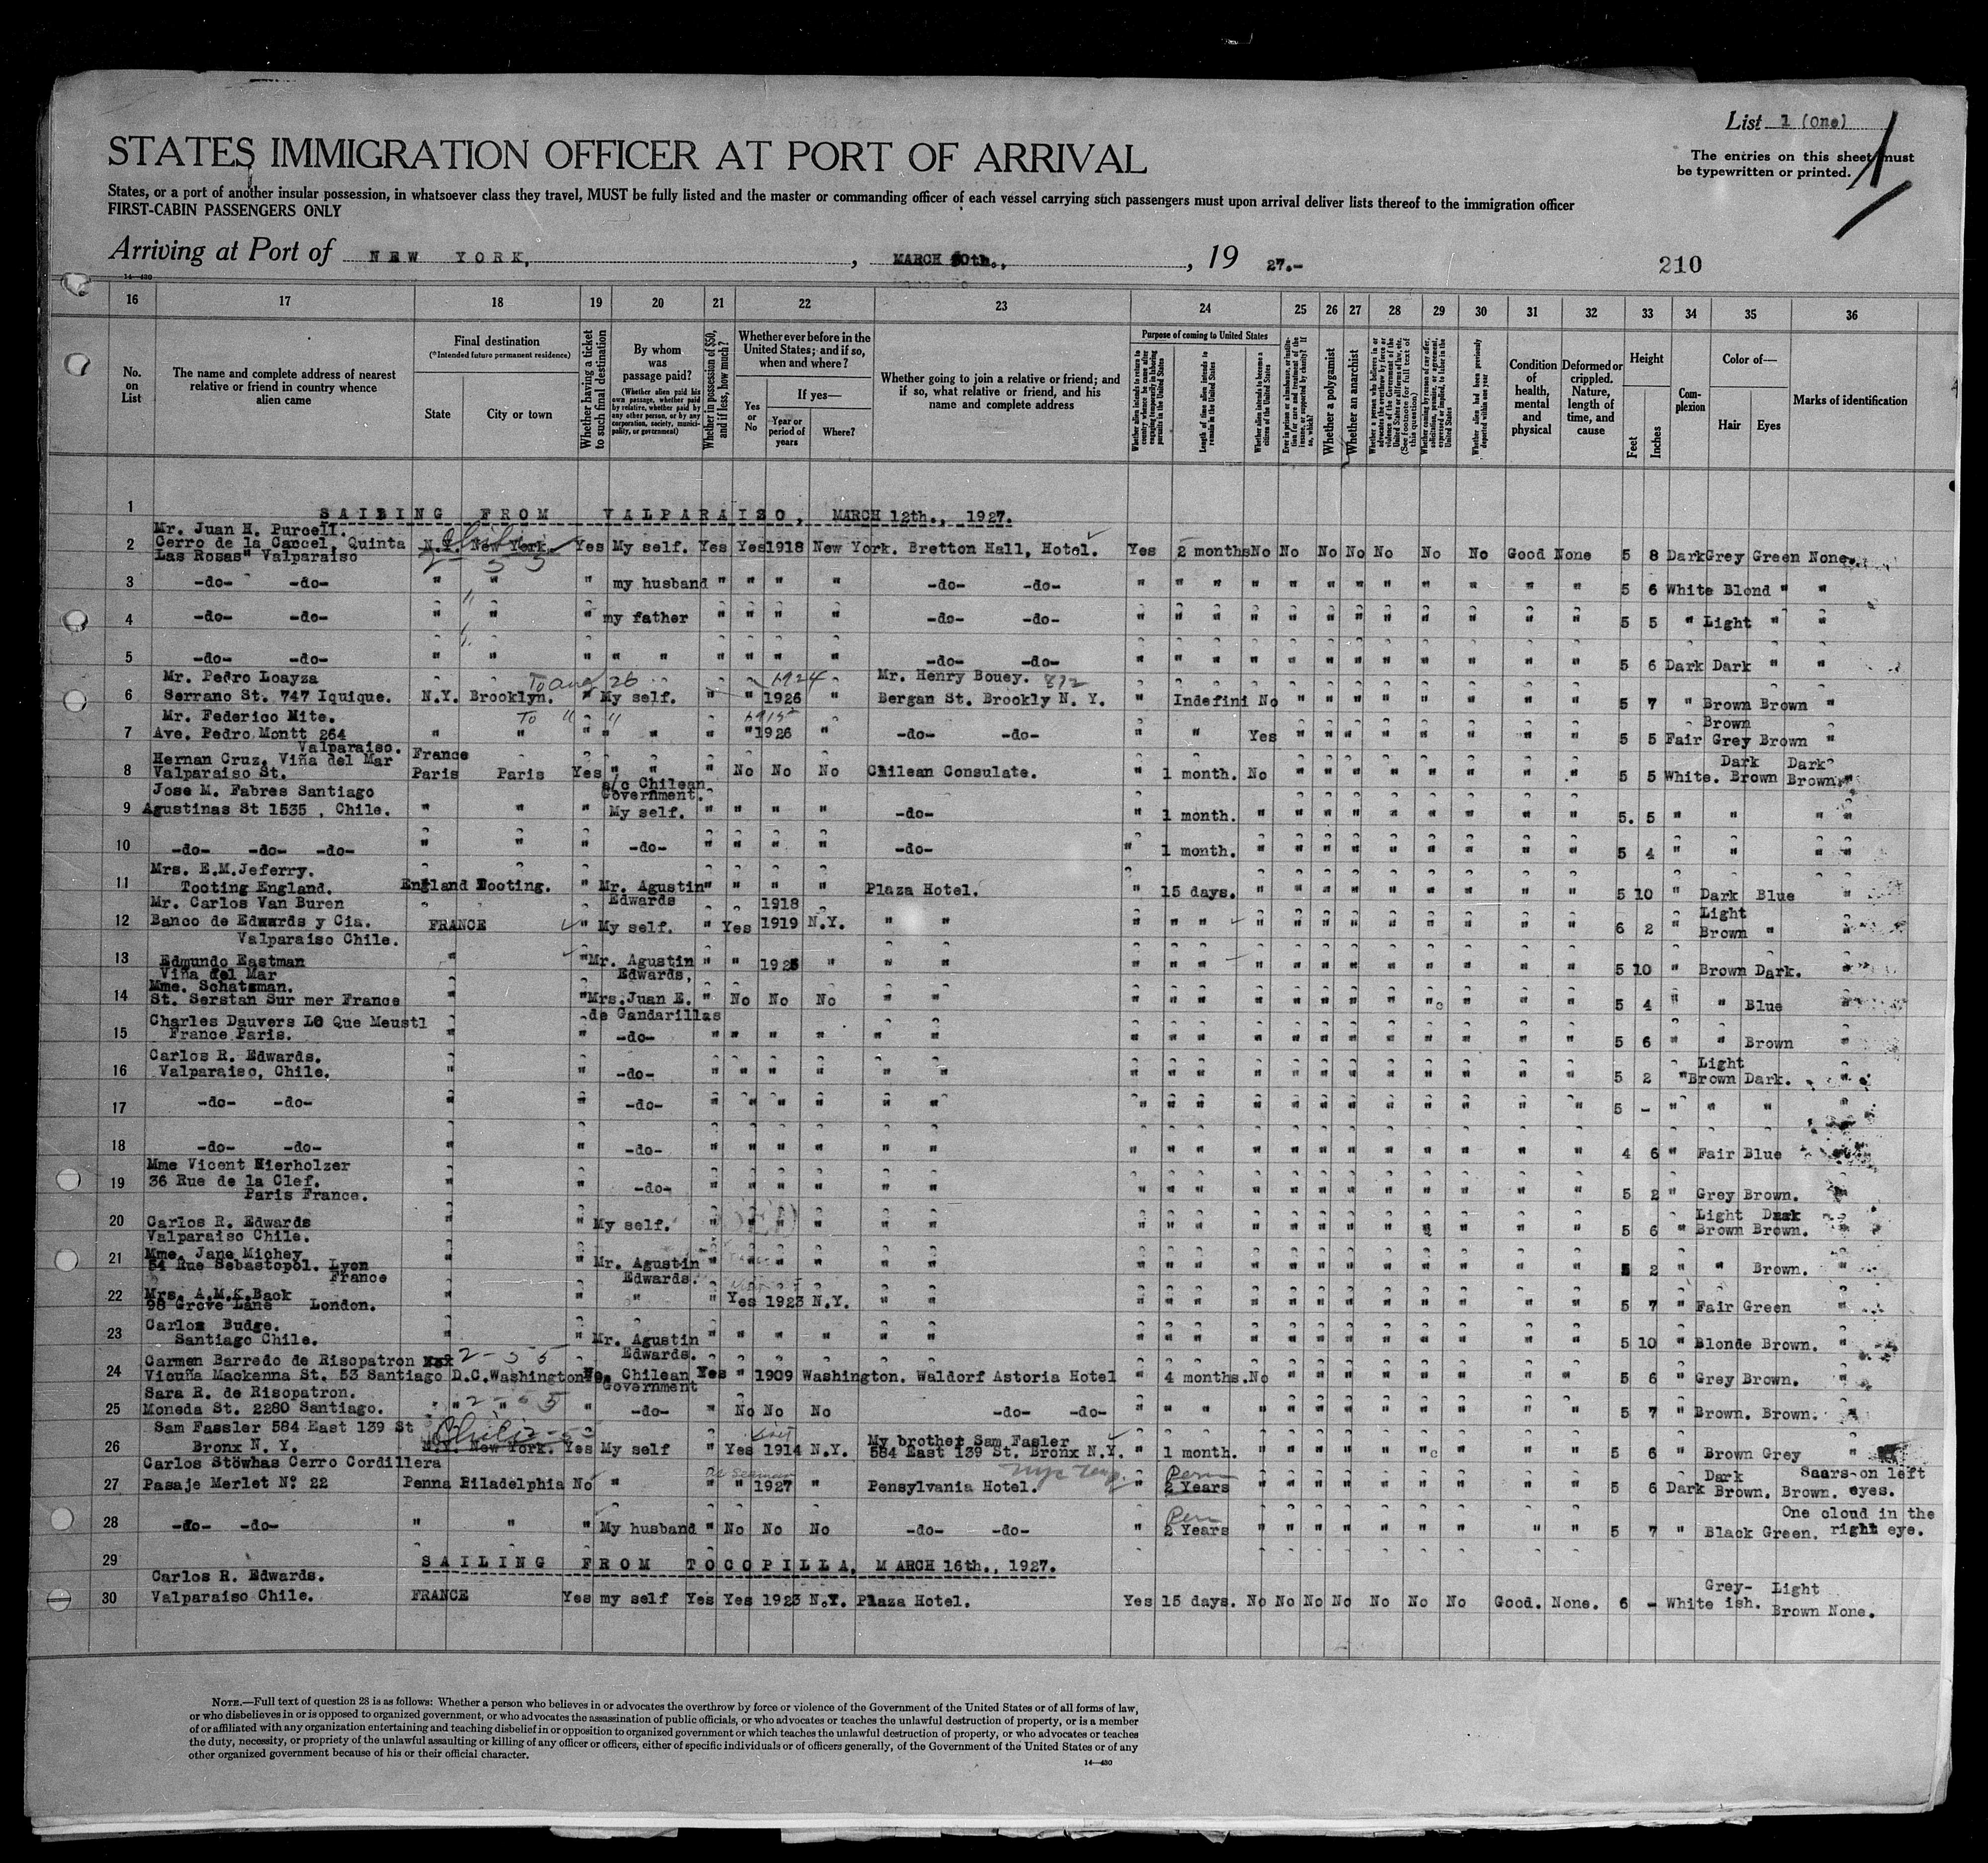 List 1 (One)
STATES IMMIGRATION OFFICER AT PORT OF ARRIVAL
The entries on this sheet must
be typewritten or printed.
States, or a port of another insular possession, in whatsoever class they travel, MUST be fully listed and the master or commanding officer of each vessel carrying such passengers must upon arrival deliver lists thereof to the immigration officer
FIRST-CABIN PASSENGERS ONLY
Arriving at Port of NEW YORK, , MARCH 30th., , 19 27.-
210
14-430
16 17 18 19 20 21 22 23 24 25 26 27 28 29 30 31 32 33 34 35 36
No. on List
The name and complete address of nearest relative or friend in country whence alien came
Final destination
(*Intended future permanent residence)
State
City or town
Whether having a ticket to such final destination
By whom was passage paid?
(Whether alien paid his own passage, whether paid by relative, whether paid by any other person, or by any corporation, society, municipality, or government)
Whether in possession of $50, and if less, how much?
Whether ever before in the United States; and if so, when and where?
Yes or No
If yes—
Year or period of years
Where?
Whether going to join a relative or friend; and if so, what relative or friend, and his name and complete address
Purpose of coming to United States
Whether alien intends to return to country whence he came after engaging temporarily in laboring pursuits in the United States
Length of time alien intends to remain in the United States
Whether alien intends to become a citizen of the United States
Whether a polygamist
Whether an anarchist
Whether alien had been previously deported within one year
Condition of health, mental and physical
Deformed or crippled. Nature, length of time, and cause
Height
Feet
Inches
Complexion
Color of—
Hair
Eyes
Marks of identification
1
SAILING FROM VALPARAISO, MARCH 12th., 1927.
Mr. Juan H. Purcell.
2 Cerro de la Carcel, Quinta N.Y. New York. Yes My self. Yes Yes 1918 New York. Bretton Hall, Hotel. Yes 2 months No No No No No No No Good None 5 8 Dark Grey Green None.
Las Rosas" Valparaiso
3 -do- -do- " " " my husband " " " " -do- -do- " " " " " " " " " " " " 5 6 White Blond " "
4 -do- -do- " " " my father " " " " -do- -do- " " " " " " " " " " " " 5 5 " Light " "
5 -do- -do- " " " " " " " " " -do- -do- " " " " " " " " " " " " 5 6 Dark Dark " "
Mr. Pedro Loayza 1924 Mr. Henry Bouey. 872
6 Serrano St. 747 Iquique. N.Y. Brooklyn. " My self. " " 1926 " Bergan St. Brookly N. Y. " Indefini No " " " " " " " " 5 7 " Brown Brown "
Mr. Federico Mite. To " " Brown
7 Ave. Pedro Montt 264 " " " " " " " 1926 " -do- -do- " " Yes " " " " " " " " 5 5 Fair Grey Brown "
Valparaiso. France
Hernan Cruz, Viña del Mar Dark Dark
8 Valparaiso St. Paris Paris Yes " " " No No No Chilean Consulate. " 1 month. No " " " " " " " " 5 5 White. Brown Brown. "
a/c Chilean
Jose M. Fabres Santiago Government.
9 Agustinas St 1535 , Chile. " " " My self. " " " " -do- " 1 month. " " " " " " " " " 5. 5 " " " "
10 -do- -do- -do- " " " -do- " " " " -do- " 1 month. " " " " " " " " " 5 4 " " " "
Mrs. E.M.Jeferry.
11 Tooting England. England Tooting. " Mr. Agustin " " " " Plaza Hotel. " 15 days. " " " " " " " " " 5 10 " Dark Blue "
Mr. Carlos Van Buren Edwards 1918 Light
12 Banco de Edwards y Cia. FRANCE " My self. " Yes 1919 N.Y. " " " " " " " " " " " " " " " 6 2 " Brown " "
Valparaiso Chile.
13 Edmundo Eastman " " Mr. Agustin " " 1925 " " " " " " " " " " " " " " " " 5 10 " Brown Dark. "
Viña del Mar Edwards,
Mme. Schatsman.
14 St. Serstan Sur mer France " " Mrs. Juan E. " No No No " " " " " " " " " " " " " " " 5 4 " " Blue "
Charles Dauvers Le Que Meustl de Gandarillas
15 France Paris. " " -do- " " " " " " " " " " " " " " " " " " " 5 6 " " Brown
Carlos R. Edwards. Light
16 Valparaiso, Chile. " " -do- " " " " " " " " " " " " " " " " " " " 5 2 " Brown Dark. "
17 -do- -do- " " -do- " " " " " " " " " " " " " " " " " " " 5 - " " "
18 -do- -do- " " -do- " " " " " " " " " " " " " " " " " " " 4 6 " Fair Blue
Mme Vicent Hierholzer
19 36 Rue de la Clef. " " -do- " " " " " " " " " " " " " " " " " " " 5 2 " Grey Brown. "
Paris France.
Light Dark
20 Carlos R. Edwards " " My self. " " " " " " " " " " " " " " " " " " 5 6 " Brown Brown. "
Valparaiso Chile.
Mme. Jane Michey
21 54 Rue Sebastopol. Lyon " " Mr. Agustin " " " " " " " " " " " " " " " " " " " 5 2 " " Brown. "
France Edwards.
Mrs. A.M.K.Back
22 98 Grove Lane London. " " " " Yes 1923 N.Y. " " " " " " " " " " " " " " " 5 7 " Fair Green "
Carlos Budge.
23 Santiago Chile. " " Mr. Agustin " " " " " " " " " " " " " " " " " " " 5 10 " Blonde Brown. "
Edwards.
Carmen Barredo de Risopatron 2-55
24 Vicuña Mackenna St. 53 Santiago D.C. Washington No. Chilean Yes " 1909 Washington. Waldorf Astoria Hotel " 4 months. No " " " " " " " " 5 6 " Grey Brown. "
Government
Sara R. de Risopatron.
25 Moneda St. 2280 Santiago. " " " -do- " No No No -do- -do- " " " " " " " " " " " 5 7 " Brown. Brown. "
Sam Fassler 584 East 139 St My brother Sam Fasler
26 Bronx N. Y. N.Y. New York. Yes My self " Yes 1914 N.Y. 584 East 139 St. Bronx N.Y. " 1 month. " " " " " " " " " 5 6 " Brown Grey "
Carlos Stöwhas Cerro Cordillera
Perm Dark Saars on left
27 Pasaje Merlet Nº 22 Penna Piladelphia No " " " 1927 " Pensylvania Hotel. " 2 Years " " " " " " " " " 5 6 Dark Brown. Brown. eyes.
Perm One cloud in the
28 -do- -do- " " " My husband " No No No -do- -do- " 2 Years " " " " " " " " " 5 7 " Black Green. right eye.
29 SAILING FROM TOCOPILLA, MARCH 16th., 1927.
Carlos R. Edwards. Grey- Light
30 Valparaiso Chile. FRANCE Yes my self Yes Yes 1923 N.Y. Plaza Hotel. Yes 15 days. No No No No No No No Good. None. 6 - White ish. Brown None.
NOTE.—Full text of question 28 is as follows: Whether a person who believes in or advocates the overthrow by force or violence of the Government of the United States or of all forms of law,
or who disbelieves in or is opposed to organized government, or who advocates the assassination of public officials, or who advocates or teaches the unlawful destruction of property, or is a member
of or affiliated with any organization entertaining and teaching disbelief in or opposition to organized government or which teaches the unlawful destruction of property, or who advocates or teaches
the duty, necessity, or propriety of the unlawful assaulting or killing of any officer or officers, either of specific individuals or of officers generally, of the Government of the United States or of any
other organized government because of his or their official character.
14-430